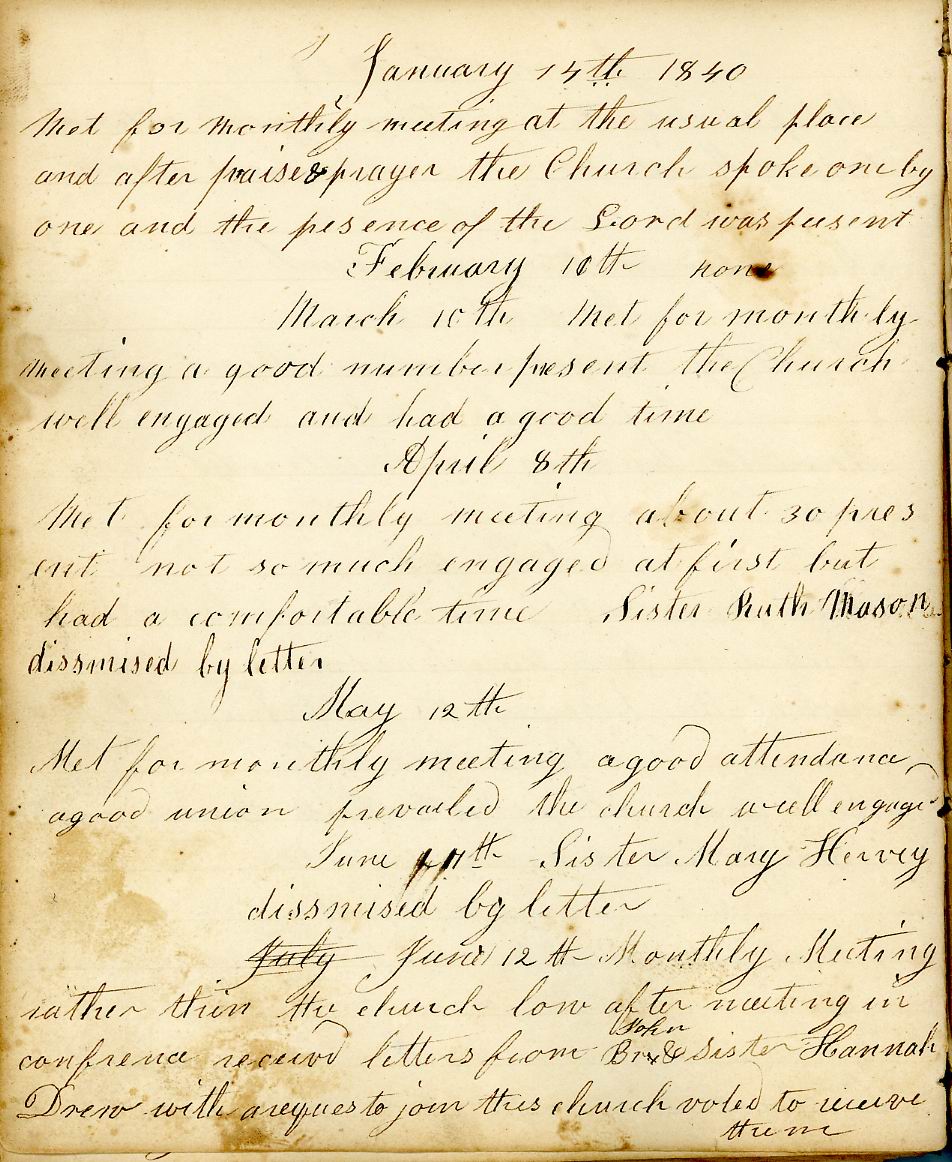 January 14th 1840
Met for monthly meeting at the usual place
and after praise & prayer the Church spoke one by
one and the pesence of the Lord was pesent
February 10th none
March 10th Met for monthly
meeting a good number present the Church
well engaged and had a good time
April 8th
Met for monthly meeting about 30 pres
ent not so much engaged at first but
had a comfortable time Sister Ruth Mason
dissmised by letter
May 12th
Met for monthly meeting a good attendance
a good union prevailed the church well engaged
June 11th Sister Mary Hervey
dissmised by letter
July June 12th Monthly Meeting
rather thin the church low after meeting in
John
confrence receivd letters from Br x & Sister Hannah
Drew with a request to join this church voted to receive
them